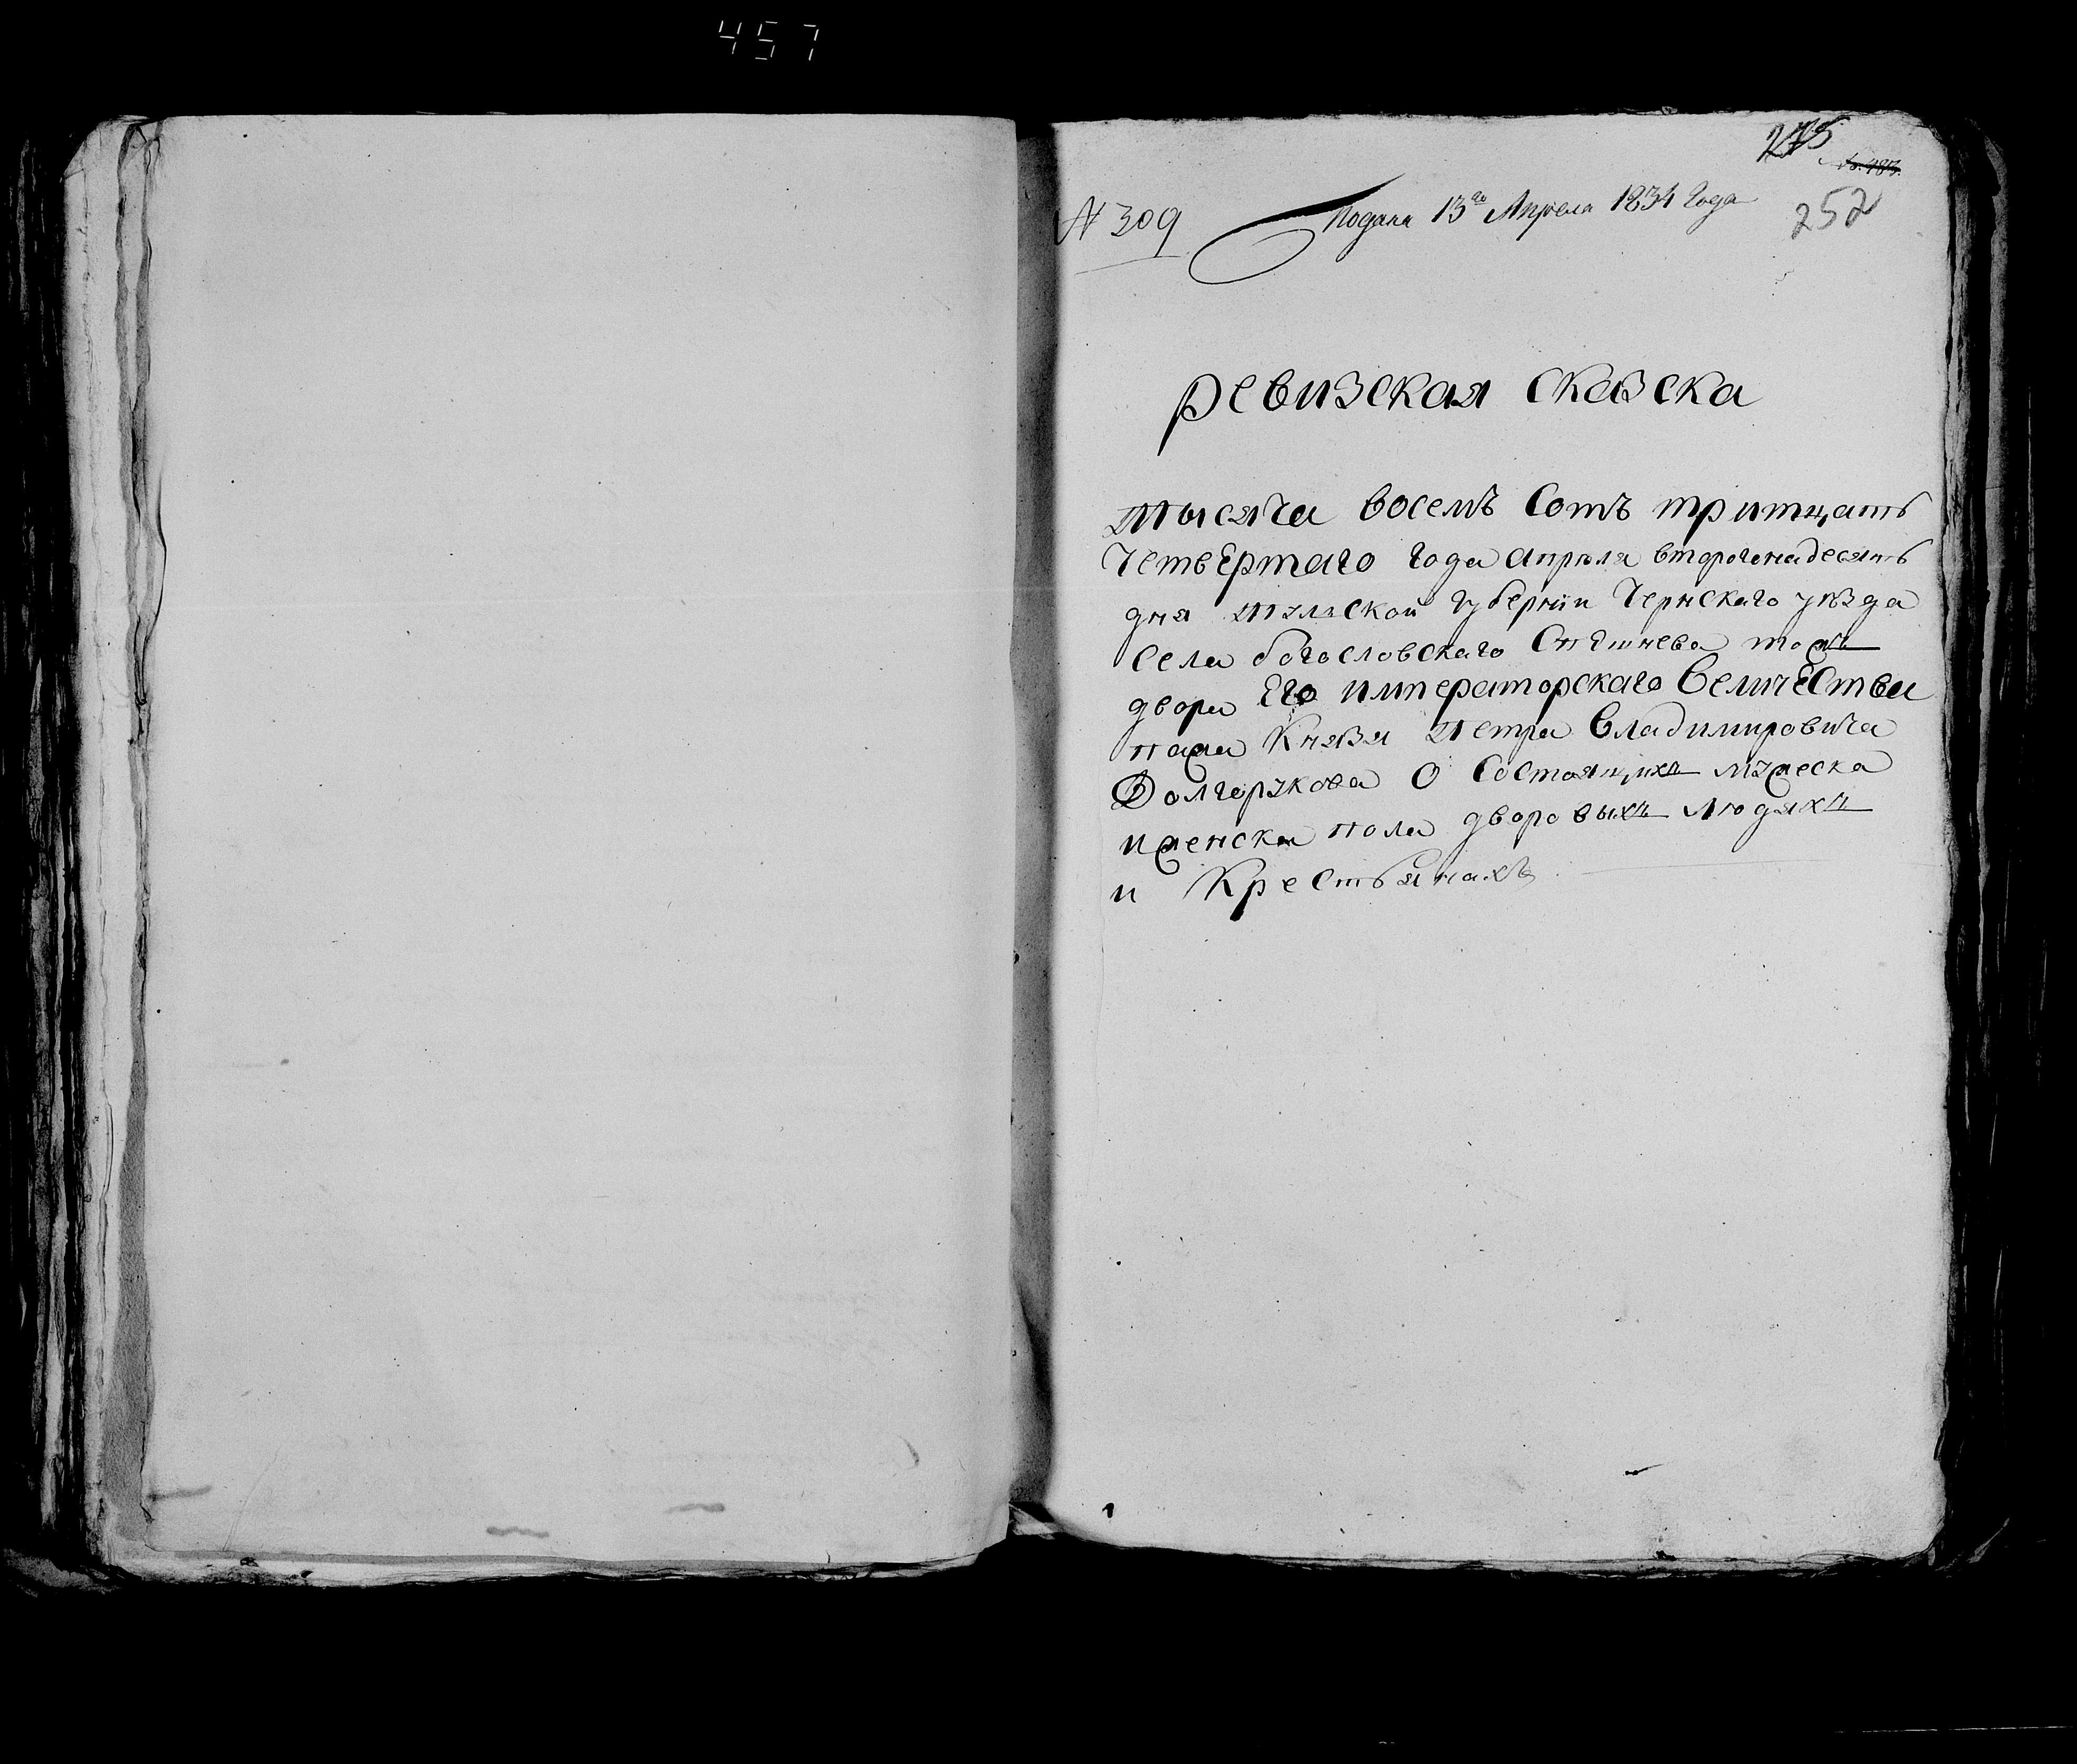 457
275
252
N 309
Подана 13го Апреля 1834 Года
ревизская сказска
тысяча восемъ сотъ тритцать
четвертаго года апреля второгонадесять
дня тульской губернии Чернскаго уезда
села богословскаго Спешнева тожъ
двора Его императорскаго величества
пажа Князя петра владимировича
Долгорукова О состоящихъ мужеска
и женска пола дворовыхъ людяхъ
и Крестьянахъ